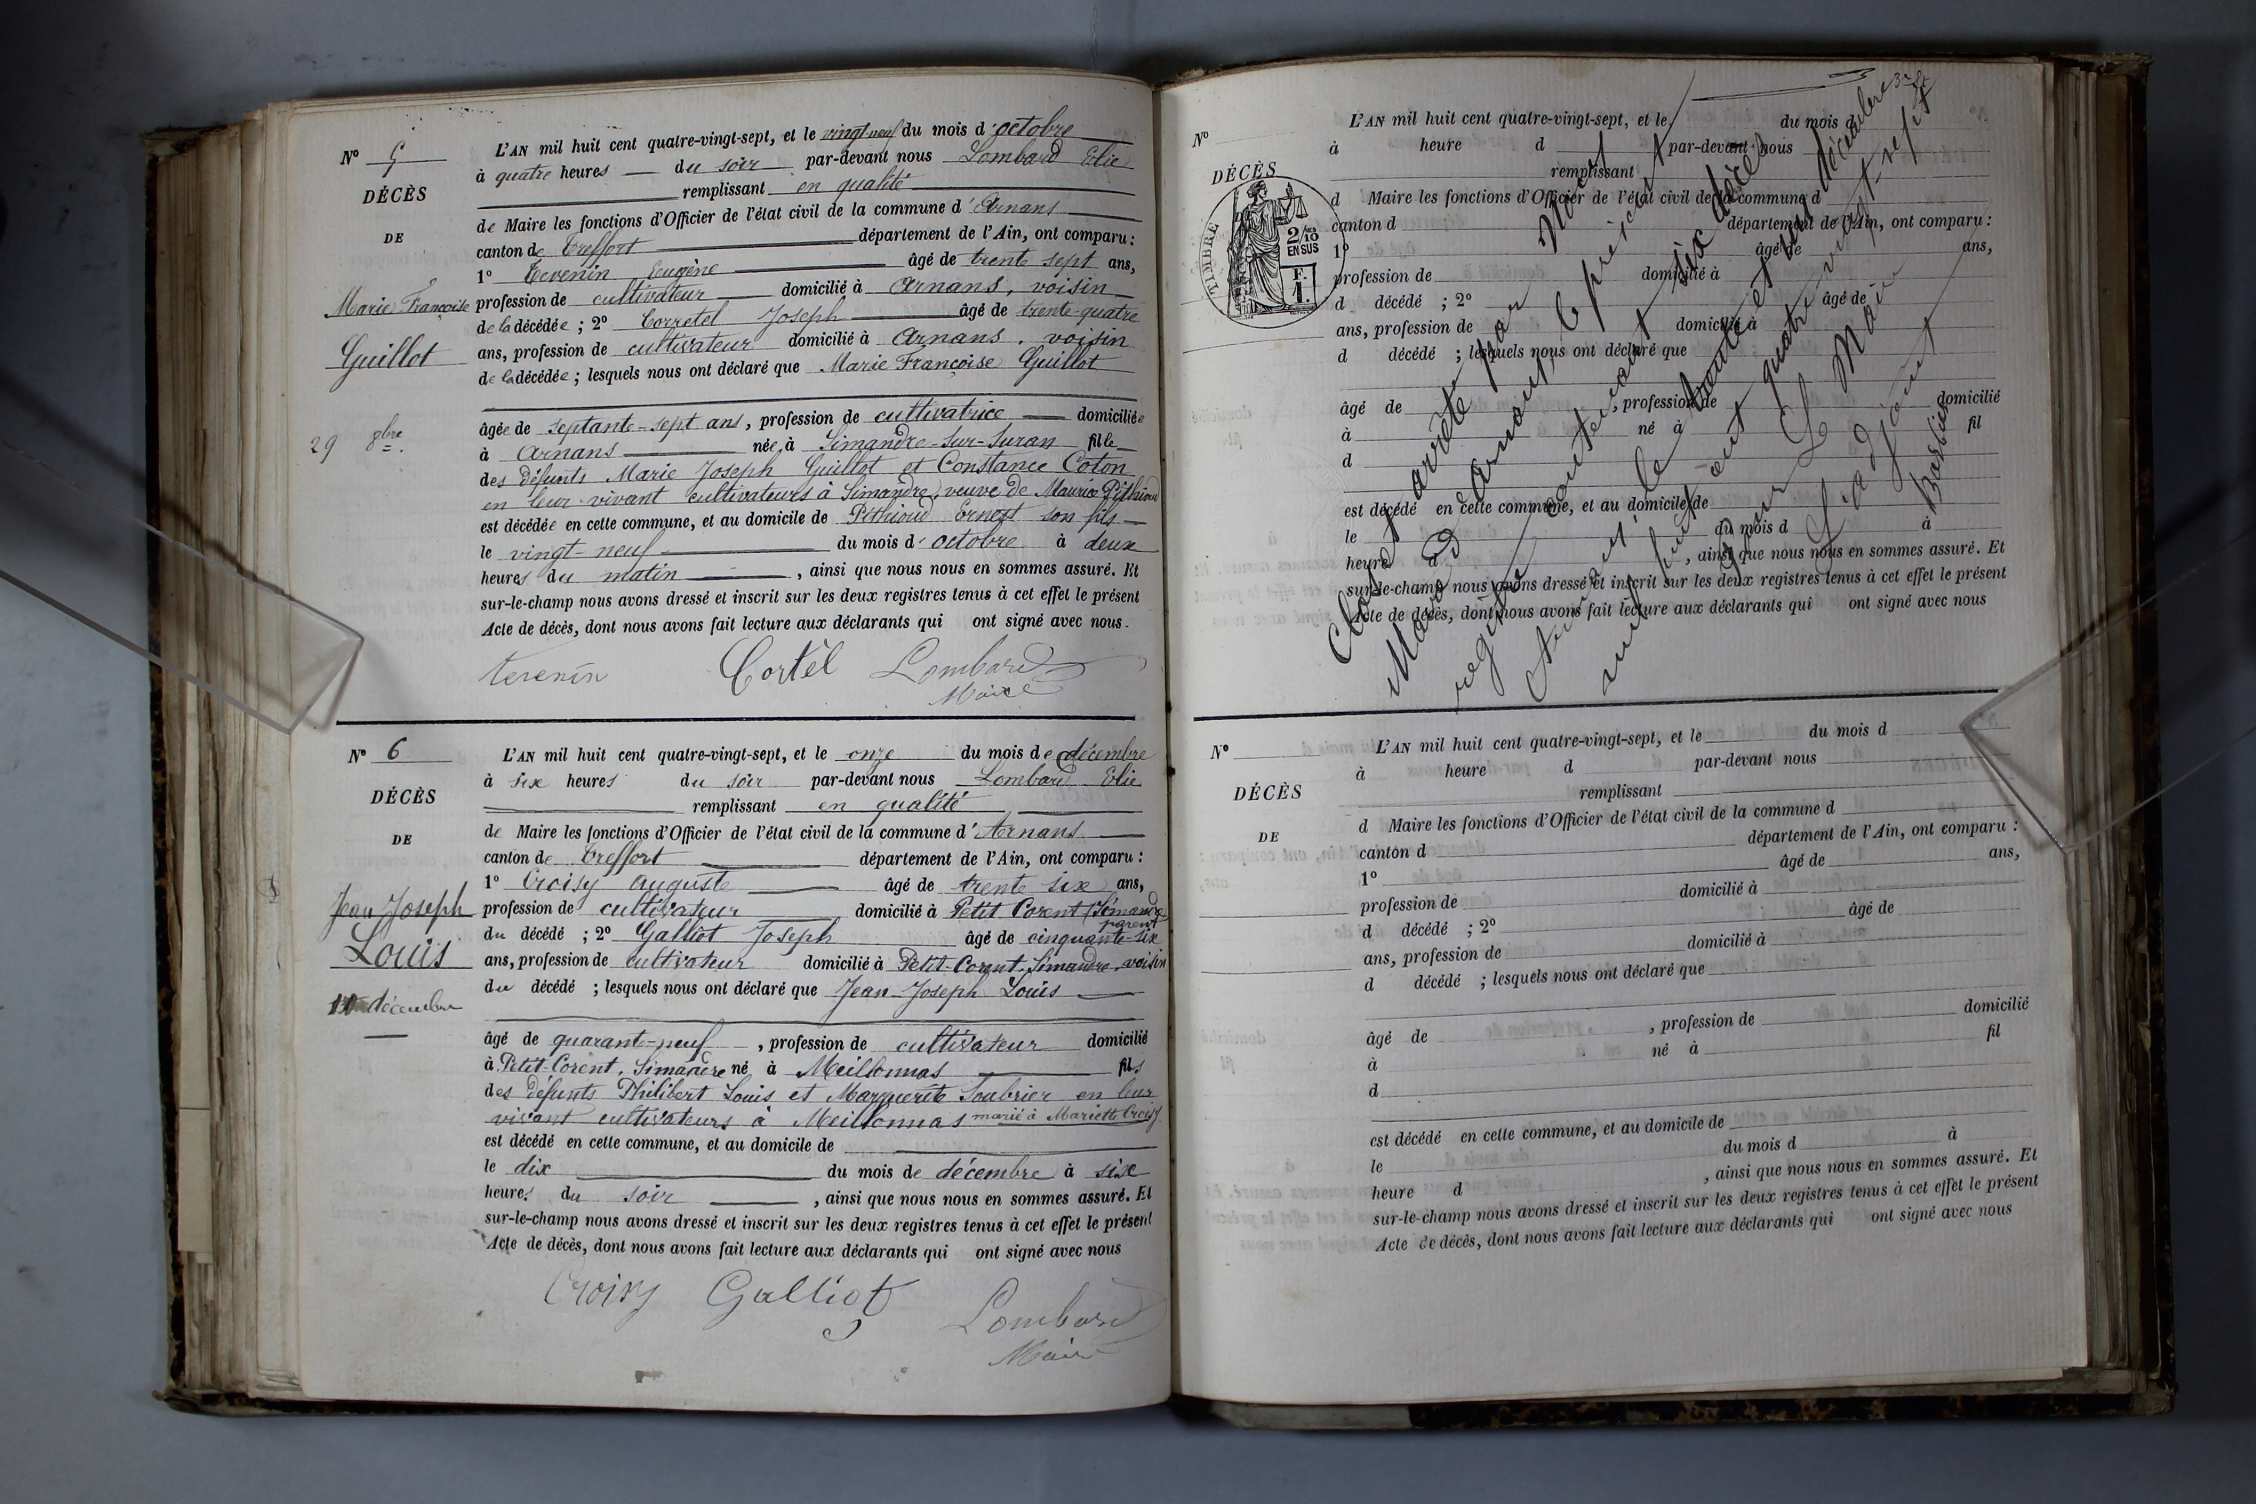 N° 5
DÉCÈS
DE
Marie Françoise
Guillot
29 8bre.
L'AN mil huit cent quatre-vingt-sept, et le vingt neuf du mois d'octobre
à quatre heures du soir par-devant nous Lombard Elie
remplissant en qualité
de Maire les fonctions d'Officier de l'état civil de la commune d'Arnans
canton de Treffort département de l'Ain, ont comparu :
1° Tevenin Eugène âgé de trente sept ans,
profession de cultivateur domicilié à Arnans, voisin
de la décédée ; 2° Corretel Joseph âgé de trente-quatre
ans, profession de cultivateur domicilié à Arnans, voisin
de la décédée ; lesquels nous ont déclaré que Marie Françoise Guillot
âgée de septante-sept ans, profession de cultivatrice domiciliée
à Arnans née à Simandre-sur-Suran fille
des défunts Marie Joseph Guillot et Constance Coton
en leur vivant cultivateurs à Simandre, veuve de Maurice Pithioud
est décédée en cette commune, et au domicile de Pithioud Ernest son fils
le vingt-neuf du mois d'octobre à deux
heures du matin, ainsi que nous nous en sommes assuré. Et
sur-le-champ nous avons dressé et inscrit sur les deux registres tenus à cet effet le présent
Acte de décès, dont nous avons fait lecture aux déclarants qui ont signé avec nous.
Terenin Cortêl Lombard
Maire
N° 6
DÉCÈS
DE
Jean Joseph
Louis
10 décembre
L'AN mil huit cent quatre-vingt-sept, et le onze du mois de décembre
à six heures du soir par-devant nous Lombard Elie
remplissant en qualité
de Maire les fonctions d'Officier de l'état civil de la commune d'Arnans
canton de Treffort département de l'Ain, ont comparu :
1° Croisy Auguste âgé de trente six ans,
profession de cultivateur domicilié à Petit Corent, Simandre
parent
du décédé ; 2° Galliot Joseph âgé de cinquante-six
ans, profession de cultivateur domicilié à Petit-Corent, Simandre, voisin
du décédé ; lesquels nous ont déclaré que Jean-Joseph Louis
âgé de quarante-neuf, profession de cultivateur domicilié
à Petit-Corent, Simandre né à Meillonnas fils
des défunts Philibert Louis et Marguerite Soubrier en leur
vivant cultivateurs à Meillonnas marié à Mariette Croisy
est décédé en cette commune, et au domicile de
le dix du mois de décembre à six
heures du soir, ainsi que nous nous en sommes assuré. Et
sur-le-champ nous avons dressé et inscrit sur les deux registres tenus à cet effet le présent
Acte de décès, dont nous avons fait lecture aux déclarants qui ont signé avec nous
Croisy Galliot Lombard
Maire
N°
DÉCÈS
TIMBRE
2/10
EN SUS
F.
1.
L'AN mil huit cent quatre-vingt-sept, et le du mois d
à heure d par-devant nous
remplissant
d Maire les fonctions d'Officier de l'état civil de la commune d
canton d département de l'Ain, ont comparu :
1° âgé de ans,
profession de domicilié à
d décédé ; 2° âgé de
ans, profession de domicilié à
d décédé ; lesquels nous ont déclaré que
âgé de , profession de domicilié
à né à fil
d
est décédé en cette commune, et au domicile de
le du mois d à
heure d , ainsi que nous nous en sommes assuré. Et
sur-le-champ nous avons dressé et inscrit sur les deux registres tenus à cet effet le présent
Acte de décès, dont nous avons fait lecture aux déclarants qui ont signé avec nous
Clos et arrêté par Nous
Maire d'Arnans, le présent
registre contenant six décès
Arnans, le trente et un décembre
mil huit cent quatre vingt-sept
Pour Le Maire
L'adjoint
Barbier
N°
DÉCÈS
DE
L'AN mil huit cent quatre-vingt-sept, et le du mois d
à heure d par-devant nous
remplissant
d Maire les fonctions d'Officier de l'état civil de la commune d
canton d département de l'Ain, ont comparu :
1° âgé de ans,
profession de domicilié à
d décédé ; 2° âgé de
ans, profession de domicilié à
d décédé ; lesquels nous ont déclaré que
âgé de , profession de domicilié
à né à fil
d
est décédé en cette commune, et au domicile de
le du mois d à
heure d , ainsi que nous nous en sommes assuré. Et
sur-le-champ nous avons dressé et inscrit sur les deux registres tenus à cet effet le présent
Acte de décès, dont nous avons fait lecture aux déclarants qui ont signé avec nous